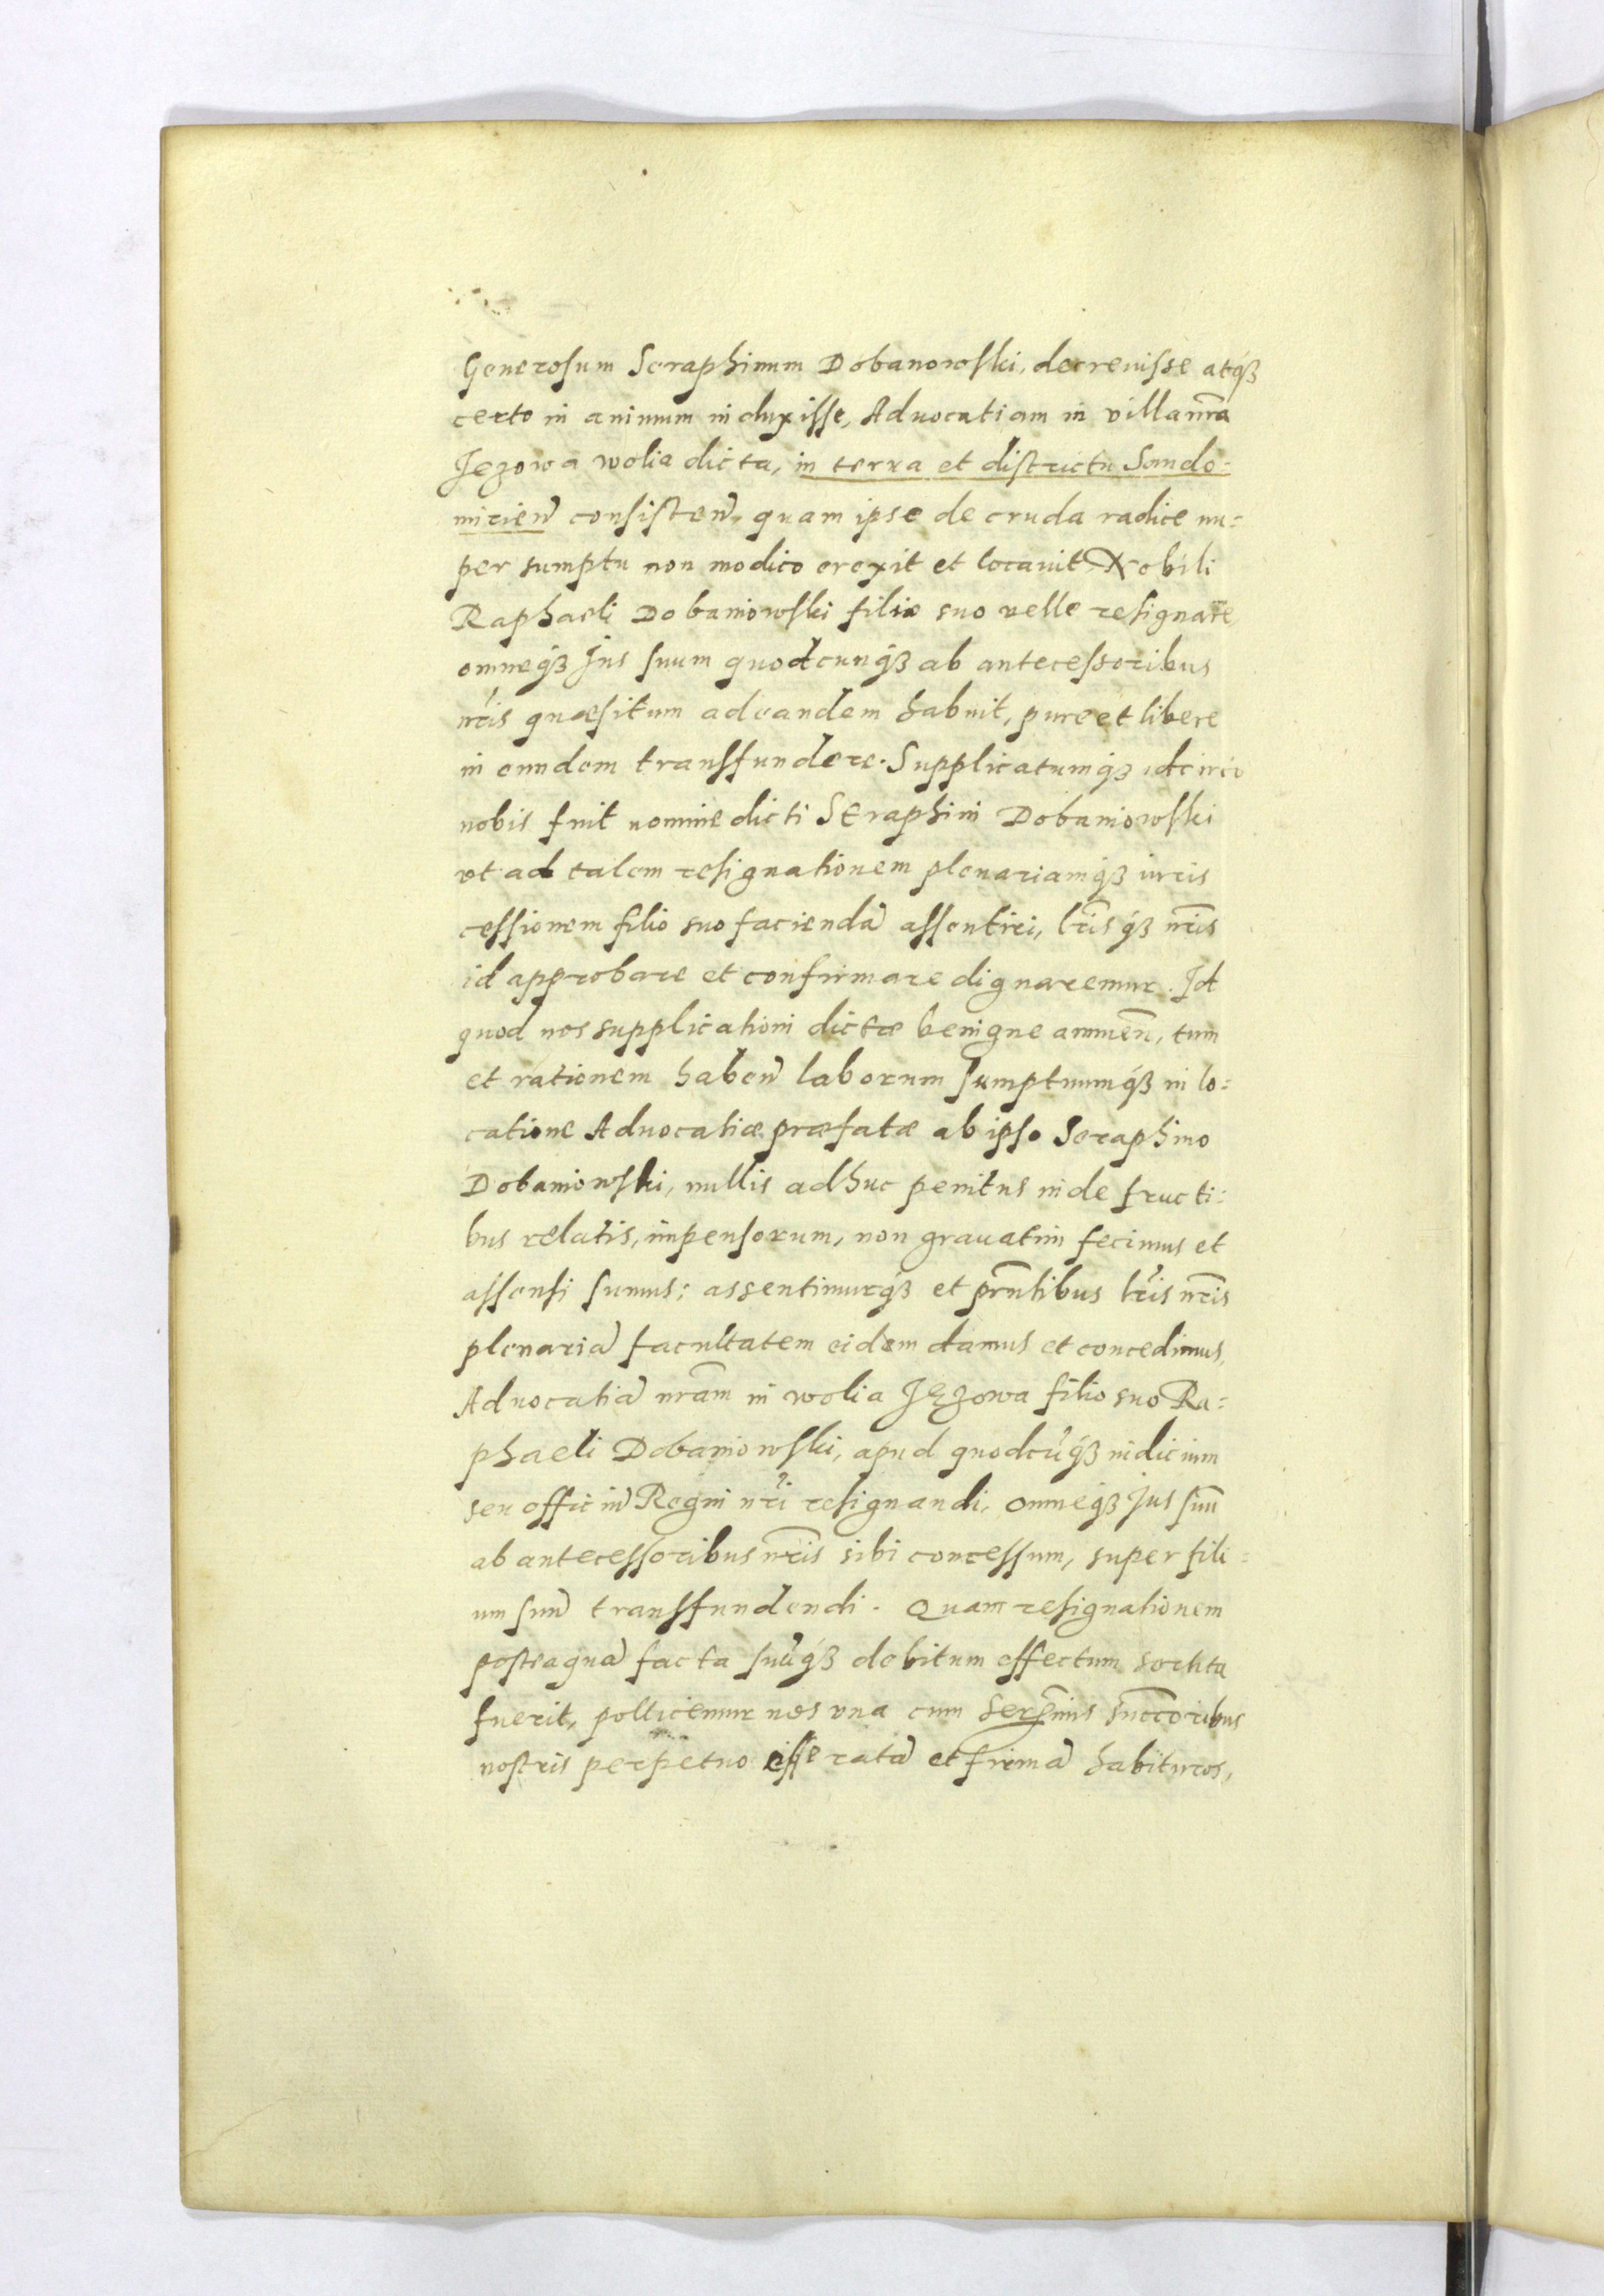 Generosum Seraphinum Dobanowski, decrevisse atq₃
certo in animum induxisse, Advocatiam in villa nr̃a
Jezowa wolia dicta, in terra et districtu Sando=
mirieñ consisteñ, quam ipse de cruda radice nu=
per sumptu non modico erexit et locavit Nobili
Raphaeli Dobaniowski filio suo velle resignare,
omneq₃ Jus suum quodcunq₃ ab antecessoribus
nr̃is quæsitum ad eandem habuit, pure et libere
in eundem transfundere. Supplicatumq₃ idcirco
nobis fuit nomine dicti Seraphini Dobaniowski
vt ad talem resignationem plenariamq₃ iuris
cessionem filio suo faciendã assentiri, lr̃is q₃ nr̃is
id approbare et confirmare dignaremur. Id
quod nos supplicationi dictæ benigne annueñ, tum
et rationem habeñ laborum sumptuumq₃ in lo=
catione Advocatiæ præfatæ ab ipso Seraphino
Dobaniowski, nullis adhuc penitus inde fructi=
bus relatis, impensorum, non gravatim fecimus et
assensi sumus; assentimurq₃ et pr̃ntibus lr̃is nr̃is
plenariã facultatem eidem damus et concedimus,
Advocatiã nr̃am in wolia Jezowa filio suo Ra=
phaeli Dobaniowski, apud quodcũq₃ iudicium
seu officiũ Regni nr̃i resignandi, omneq₃ Jus suũ
ab antecessoribus nr̃is sibi concessum, super fili=
um suũ transfundendi. Quam resignationem
posteaquã facta suũq₃ debitum effectum sortita
fuerit, pollicemur nos vna cum Serp̃mis Succ̃oribus
nostris perpetuo esse ratã et firmã habituros,